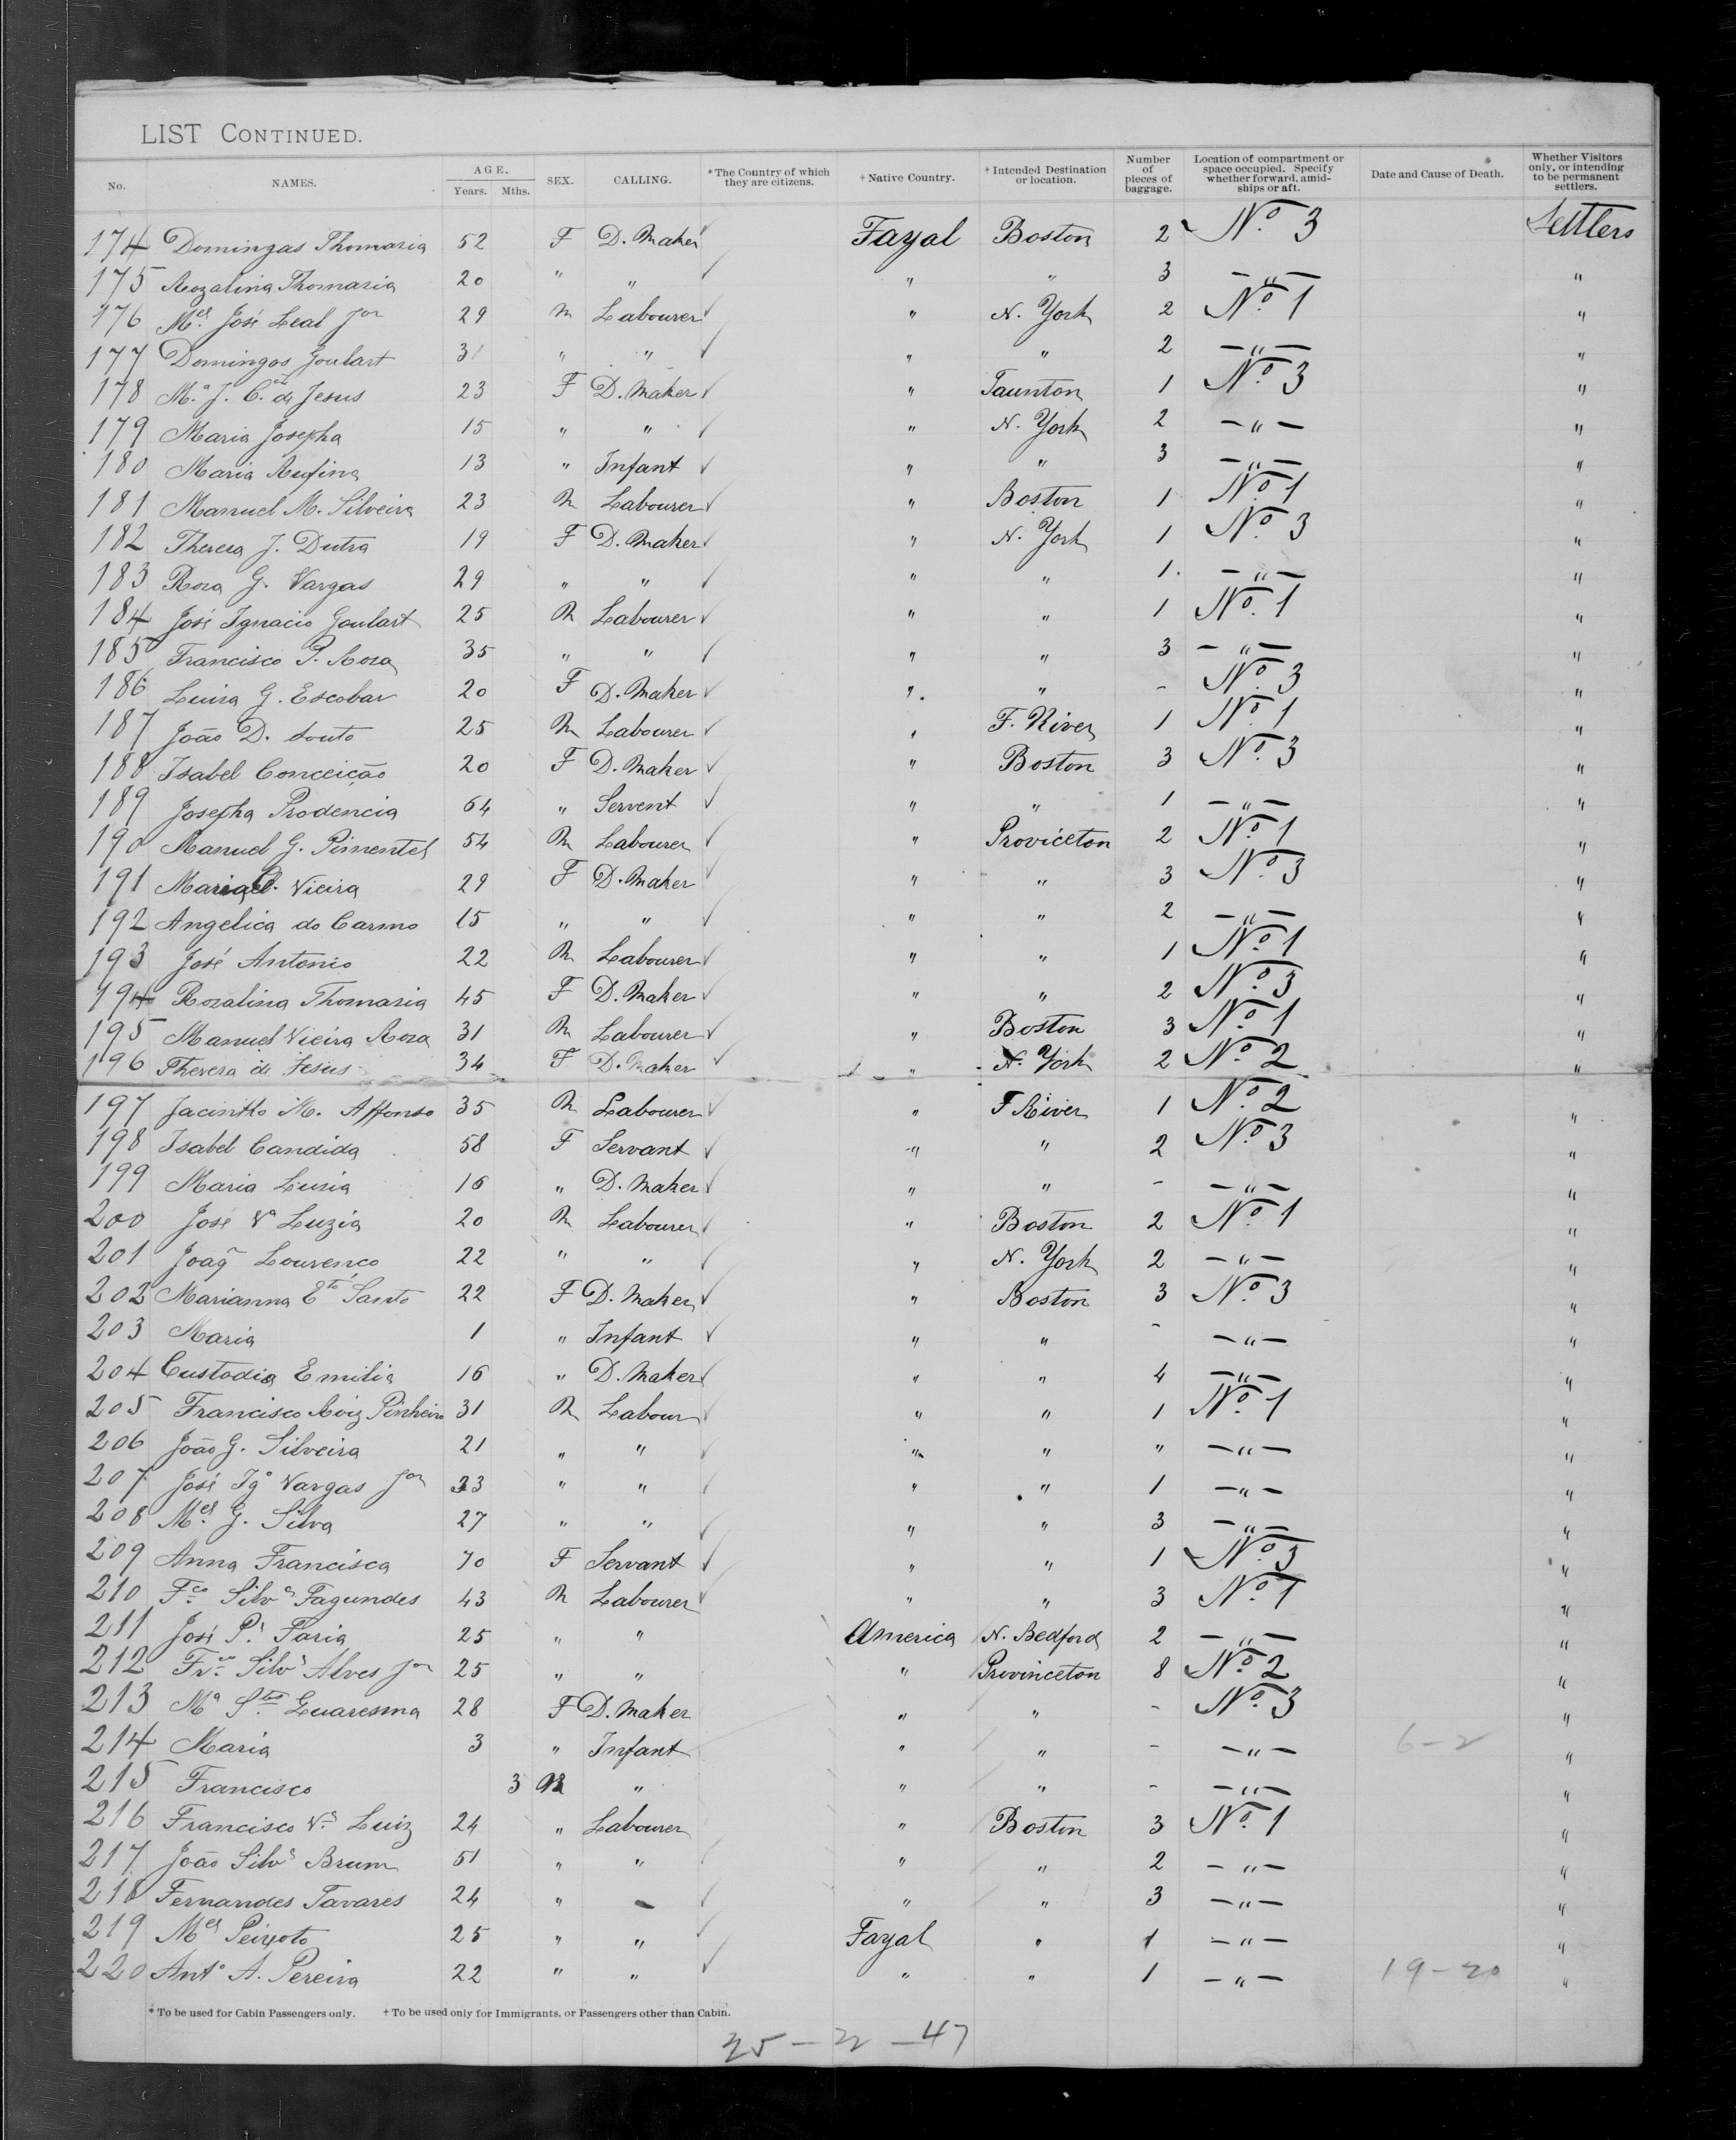 LIST CONTINUED.
No. NAMES. AGE. Years. Mths. SEX. CALLING. *The Country of which they are citizens. †Native Country. †Intended Destination or location. Number of pieces of baggage. Location of compartment or space occupied. Specify whether forward, amidships or aft. Date and Cause of Death. Whether Visitors only, or intending to be permanent settlers.
174 Domingas Thomasia 52 F D. Maker Fayal Boston 2 Nº 3 Settlers
175 Rozalina Thomasia 20 " " " " 3 —"— "
176 Mel José Leal Jor 29 M Labourer " N. York 2 Nº 1 "
177 Domingos Goulart 31 " " " " 2 —"— "
178 Mª J. C. de Jesus 23 F D. Maker " Taunton 1 Nº 3 "
179 Maria Josepha 15 " " " N. York 2 —"— "
180 Maria Rufina 13 " Infant " " 3 —"— "
181 Manuel M. Silveira 23 M Labourer " Boston 1 Nº 1 "
182 Theresa J. Dutra 19 F D. Maker " N. York 1 Nº 3 "
183 Rosa G. Vargas 29 " " " " 1. —"— "
184 José Ignacio Goulart 25 M Labourer " " 1 Nº 1 "
185 Francisco P. Rosa 35 " " " " 3 —"— "
186 Luisa G. Escobar 20 F D. Maker " " - Nº 3 "
187 João D. Souto 25 M Labourer " F. River 1 Nº 1 "
188 Isabel Conceição 20 F D. Maker " Boston 3 Nº 3 "
189 Josepha Prodencia 64 " Servent " " 1 —"— "
190 Manuel G. Pimentel 54 M Labourer " Proviceton 2 Nº 1 "
191 Maria C. Vieira 29 F D. Maker " " 3 Nº 3 "
192 Angelica do Carmo 15 " " " " 2 —"— "
193 José Antonio 22 M Labourer " " 1 Nº 1 "
194 Rozalina Thomasia 45 F D. Maker " " 2 Nº 3 "
195 Manuel Vieira Rosa 31 M Labourer " Boston 3 Nº 1 "
196 Theresa de Jesus 34 F D. Maker " N. York 2 Nº 2 "
197 Jacintho M. Affonso 35 M Labourer " F River 1 Nº 2 "
198 Isabel Candida 58 F Servant " " 2 Nº 3 "
199 Maria Lusia 16 " D. Maker " " - —"— "
200 José Vª Luzia 20 M Labourer " Boston 2 Nº 1 "
201 Joaõ Lourenco 22 " " " N. York 2 —"— "
202 Marianna Eto Santo 22 F D. Maker " Boston 3 Nº 3 "
203 Maria 1 " Infant " " - —"— "
204 Custodia Emilia 16 " D. Maker " " 4 —"— "
205 Francisco Roiz Pinheiro 31 M Labour " " 1 Nº 1 "
206 João G. Silveira 21 " " " " " —"— "
207 José Igº Vargas Jor 23 " " " " 1 —"— "
208 Mel G. Silva 27 " " " " 3 —"— "
209 Anna Francisca 70 F Servant " " 1 Nº 3 "
210 Fco Silvª Fagundes 43 M Labourer " " 3 Nº 1 "
211 José Pª Faria 25 " " America N. Bedford 2 —"— "
212 Frco Silvª Alves Jor 25 " " " Provinceton 8 Nº 2 "
213 Mª Stos Quaresma 28 F D. Maker " " - Nº 3 "
214 Maria 3 " Infant " " - —"— 6-2 "
215 Francisco 3 M " " " - —"— "
216 Francisco Vª Luiz 24 " Labourer " Boston 3 Nº 1 "
217 João Silvª Brum 51 " " " " 2 —"— "
218 Fernandes Tavares 24 " " " 3 —"— "
219 Mel Peixoto 25 " " Fayal " 1 —"— "
220 Antº A. Pereira 22 " " " " 1 —"— 19-20 "
*To be used for Cabin Passengers only. †To be used only for Immigrants, or Passengers other than Cabin.
25 - 22 - 47